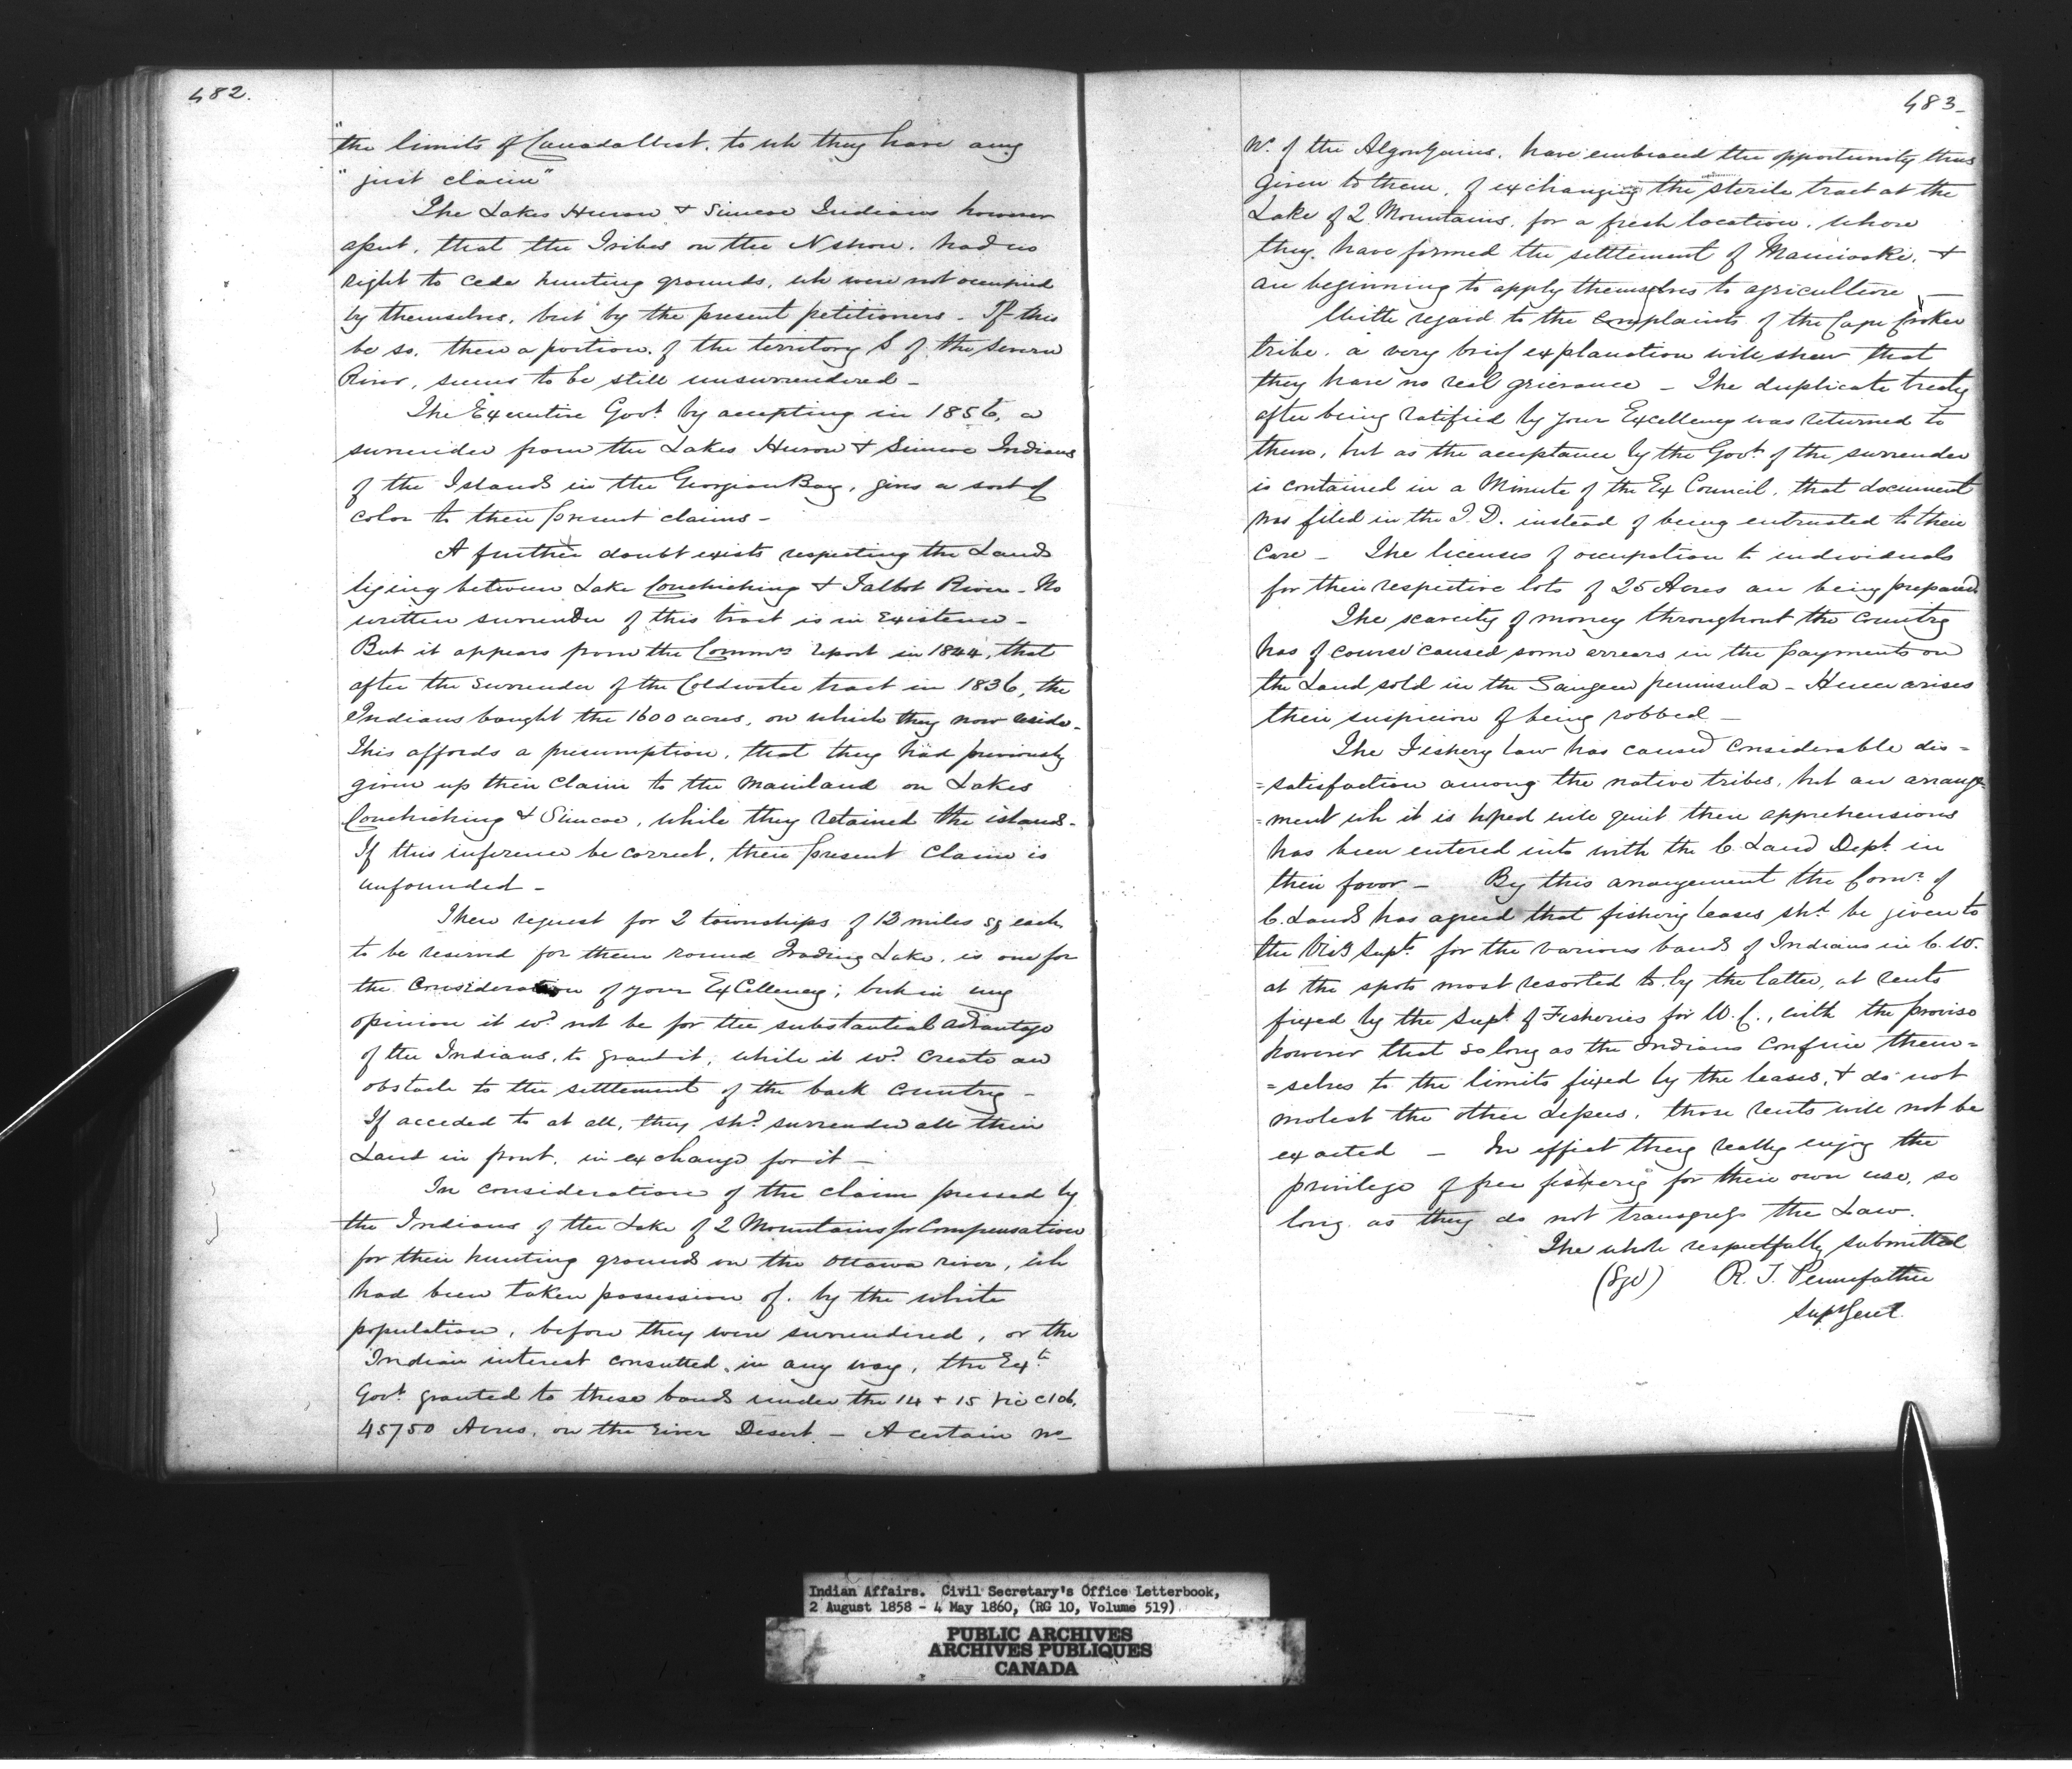 482.
"the limits of Canada West, to wh they have any
"just claim"
The Lakes Huron & Simcoe Indians however
assert, that the Tribes on the N shore, had no
right to cede hunting grounds, wh were not occupied
by themselves, but by the present petitioners - If this
be so, then a portion, of the territory S of the Severn
River, seems to be still unsurrendered -
The Executive Govt by accepting in 1856, a
surrender from the Lakes Huron & Simcoe Indians
of the Islands in the Georgian Bay, gives a sort of
color to their present claims -
A further doubt exists respecting the Lands
lying between Lake Couchiching & Talbot River - No
written surrender of this tract is in Existence -
But it appears from the Commrs report in 1844, that
after the surrender of the Coldwater tract in 1836, the
Indians bought the 1600 acres, on which they now reside -
This affords a presumption, that they had previously
given up their claim to the mainland on Lakes
Couchiching & Simcoe, while they retained the islands -
If this inference be correct, their present claim is
unfounded -
Their request for 2 townships of 12 miles sq each
to be reserved for them round Trading Lake, is one for
the consideration of your Excellency; but in my
opinion it wd not be for the substantial advantage
of the Indians, to grant it, while it wd create an
obstacle to the settlement of the back country -
If acceded to at all, they shd surrender all their
Land in front, in exchange for it -
In consideration of the claim pressed by
the Indians of the Lake of 2 Mountains for Compensation
for their hunting grounds on the Ottawa river, wh
had been taken possession of, by the white
population, before they were surrendered, or the
Indian interest consulted, in any way, the Ext
Govt granted to these bands under the 14 & 15 Vic c 106,
45750 Acres, on the River Desert - A certain no
483-
No. of the Algonquins, have embraced the opportunity thus
given to them, of exchanging the sterile tract at the
Lake of 2 Mountains, for a fresh location, where
they have formed the settlement of Maniwaki, &
are beginning to apply themselves to agriculture -
With regard to the complaints of the Cape Croker
tribe, a very brief explanation will shew that
they have no real grievance - The duplicate treaty
after being ratified by your Excellency was returned to
them, but as the acceptance by the Govt of the surrender
is contained in a Minute of the Ex Council, that document
was filed in the I. D. instead of being entrusted to their
care - The licenses of occupation to individuals
for their respective lots of 25 Acres are being prepared
The scarcity of money throughout the country
has of course caused some arrears in the payments on
the Land sold in the Saugeen peninsula - Hence arises
their suspicion of being robbed -
The Fishery law has caused considerable dis=
=satisfaction among the native tribes, but an arrange=
=ment wh it is hoped will quiet their apprehensions
has been entered into with the C. Land Dept in
their favor - By this arrangement the Comr of
C. Lands has agreed that fishing leases shd be given to
the Vis Supts for the various bands of Indians in C. W.
at the spots most resorted to by the latter, at rents
fixed by the Supt of Fisheries for W. C., with the proviso
however that so long as the Indians confine them=
=selves to the limits fixed by the leases, & do not
molest the other Lessees, those rents will not be
exacted - In effect they really enjoy the
privilege of free fishing for their own use, so
long as they do not transgress the Law.
The whole respectfully submitted
(Sgd) R. T. Pennefather
Supt Genl.
Indian Affairs. Civil Secretary's Office Letterbook,
2 August 1858 - 4 May 1860, (RG 10, Volume 519)
PUBLIC ARCHIVES
ARCHIVES PUBLIQUES
CANADA